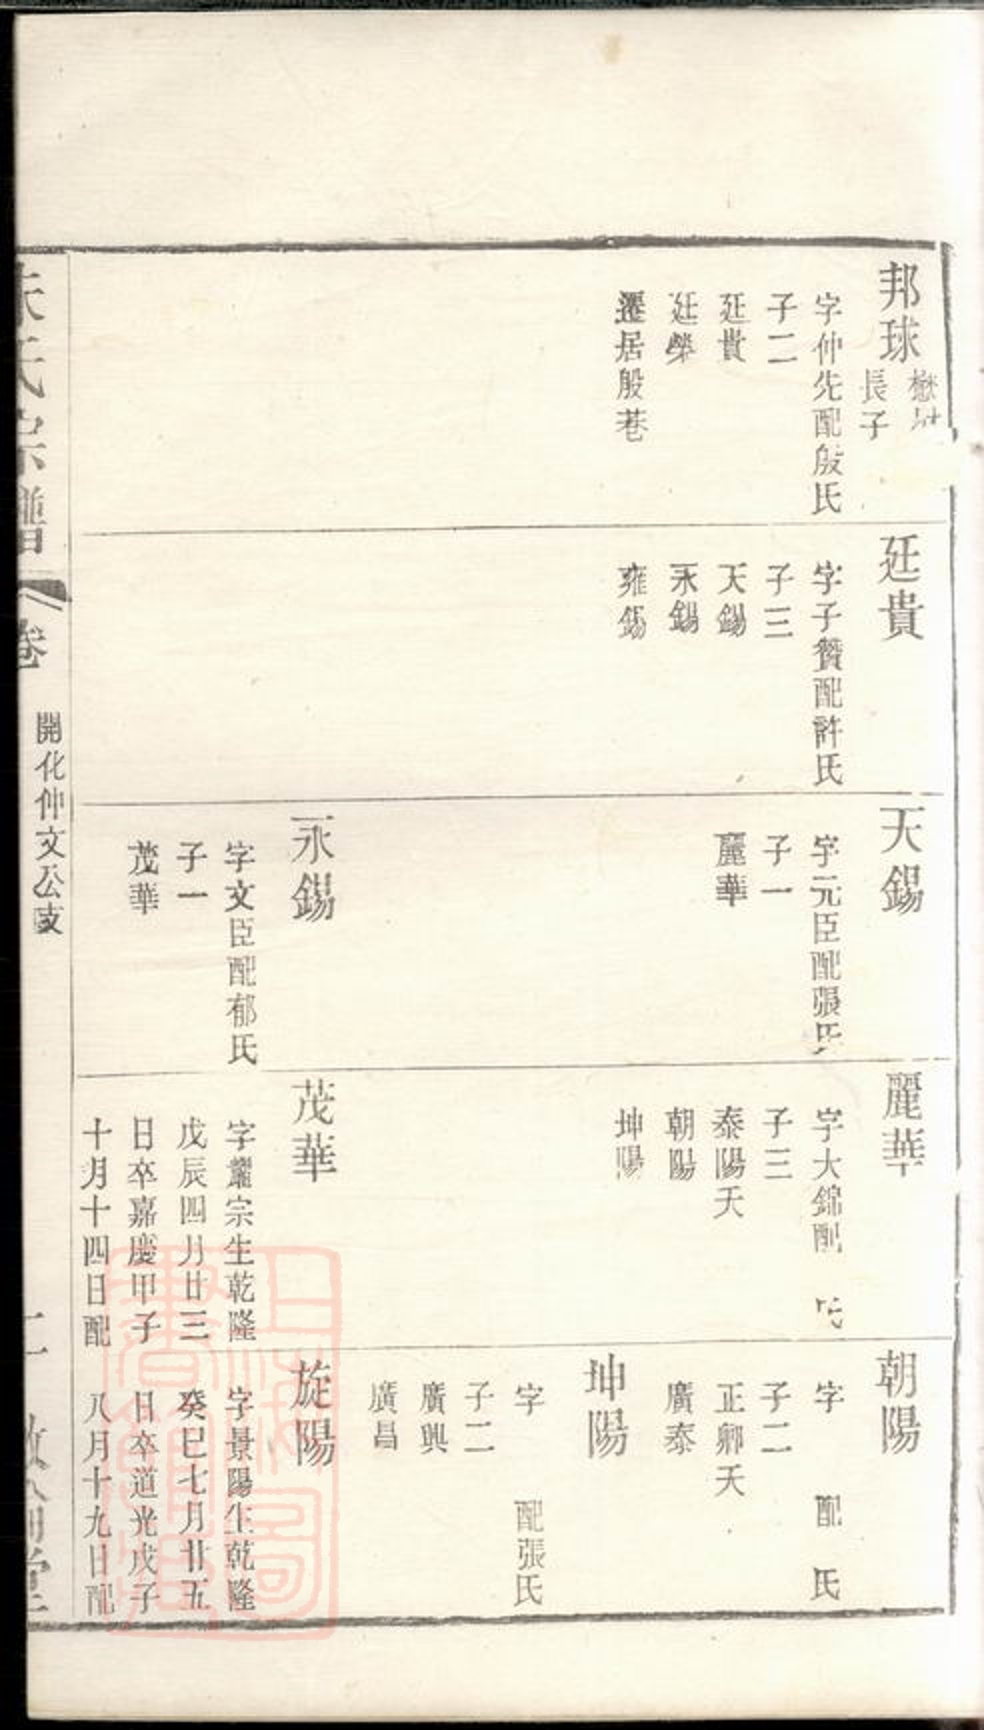 邦球
長子
字仲先配殷氏
子二
廷貴
廷榮
遷居殷巷
廷貴
字子贊配許氏
子三
天錫
永錫
雍錫
天錫
字元臣配張氏
子一
麗華
永錫
字文臣配郁氏
子一
茂華
麗華
字大錦配 氏
子三
泰陽夭
朝陽
坤陽
茂華
字耀宗生乾隆
戊辰四月廿三
日卒嘉慶甲子
十月十四日配
朝陽
字 配 氏
子二
正卿夭
廣泰
坤陽
字 配張氏
子二
廣興
廣昌
旋陽
字景陽生乾隆
癸巳七月廿五
日卒道光戊子
八月十九日配
朱氏宗譜
卷
開化仲文公支